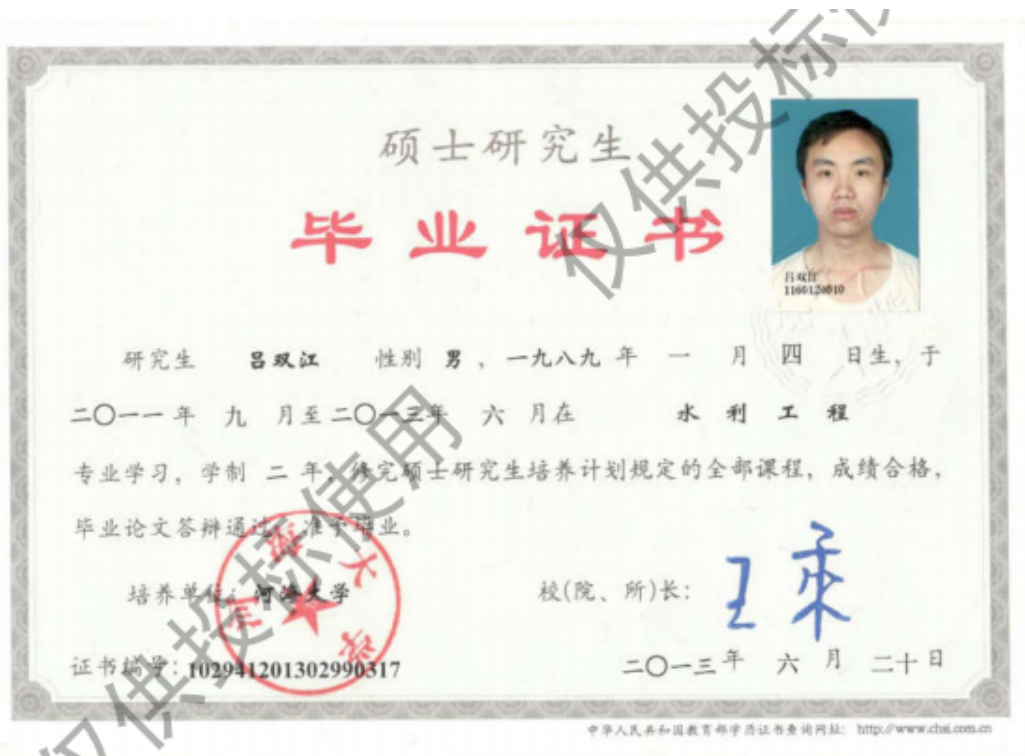 硕士研究生
毕业证书
吕双江
1160120010
研究生 吕双江 性别 男，一九八九 年 一 月 四 日生，于
二〇一一 年 九 月至 二〇一三年 六 月在 水利工程
专业学习，学制 二 年，修完硕士研究生培养计划规定的全部课程，成绩合格，
毕业论文答辩通过，准予毕业。
培养单位：河海大学
河海大学
校(院、所)长：
王乘
证书编号：102941201302990317
二〇一三 年 六 月 二十日
中华人民共和国教育部学历证书查询网址： http://www.chsi.com.cn
仅供投标使用
仅供投标使用